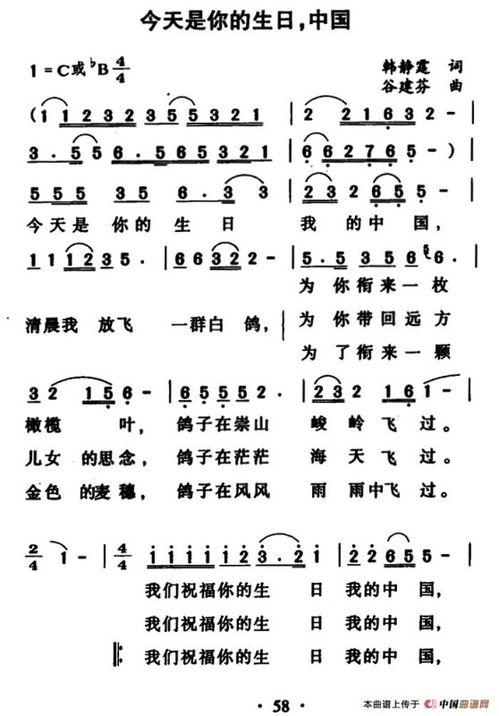 今天是你的生日，中国
1=C或♭B 4/4 韩静霆 词
谷建芬 曲
(1 1 2 3 2 3 5 3 5 3 2 1 | 2 2 1 6 3 2 - |
3. 5 5 6. 5 6 5 3 2 1 | 6 6 2 7 6 5 - ) |
5 5 5 3 5 6. 3 3 | 2 3 2 6 5 5 - |
今天是 你的 生 日 我 的中 国，
1 1 1 2 3 5. | 6 6 3 2 - | 5. 5 3 5 6 5 6. |
为 你衔来一枚
清晨我 放飞 一群白 鸽， 为 你带回远方
为 了衔来一颗
3 2 1 5 6 - | 6 5 5 5 2. | 2 3 2 1 6 1 - |
橄榄 叶， 鸽子在崇山 峻岭飞 过。
儿女 的思念， 鸽子在茫茫 海天飞 过。
金色 的麦穗， 鸽子在风风 雨雨中飞 过。
2/4 1 - | 4/4 1 1 1 1 1 1 2 3. 2 1 | 2 2 6 5 5 - |
我们祝福你的生 日 我的中 国，
我们祝福你的生 日 我的中 国，
我们祝福你的生 日 我的中 国，
· 58 ·
本曲谱上传于 中国曲谱网